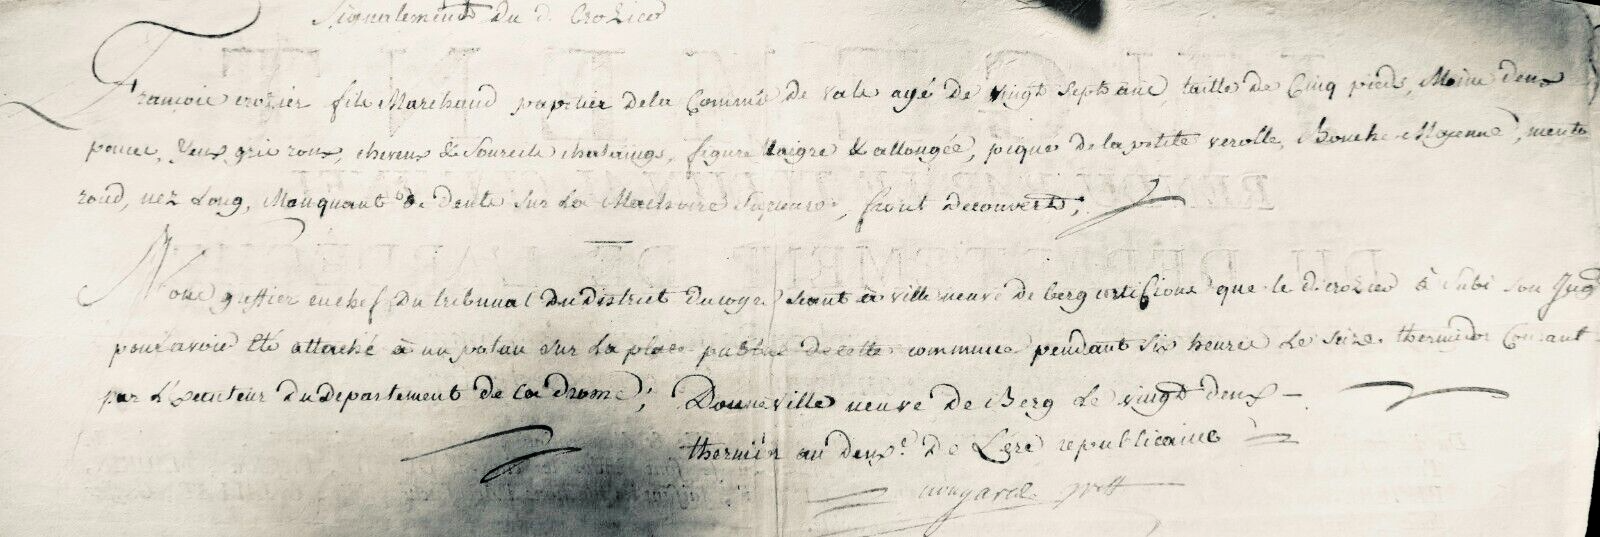 Signalement du d. Crozier
François crozier fils Marchand papetier dela Commune de vals agé de vingt Sept ans, taille de Cinq pieds, Moins deux
pouces, yeux gris roux, cheveux & Sourcils chataings, figure Maigre & allongée, piqué de la petite verolle, Bouche Moyenne, menton
rond, nez Long, Manquant de dents sur La Machoire Superieure, front decouvert;
Nous greffier en chef du tribunal du district du seant à ville neuve de berg certifions que le d. crozier à subi son Jug
pour avoir été attaché à un potau sur La place publique de cette commune pendant six heures Le seize thermidor Courant
par L'Executeur du departement de La drome; Donné ville neuve de Berg Le vingt deux
thermid'r an deux.e de L'ere republicaine